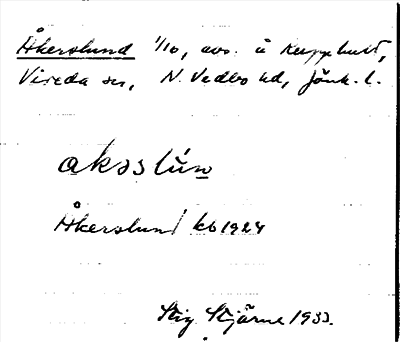 Åkerslund 1/10, avs. å Kupphult,
Vireda sn, N. Vedbo hd, Jönk. l.
akəslún
Åkerslund kb 1924
Stig Stjärne 1933.